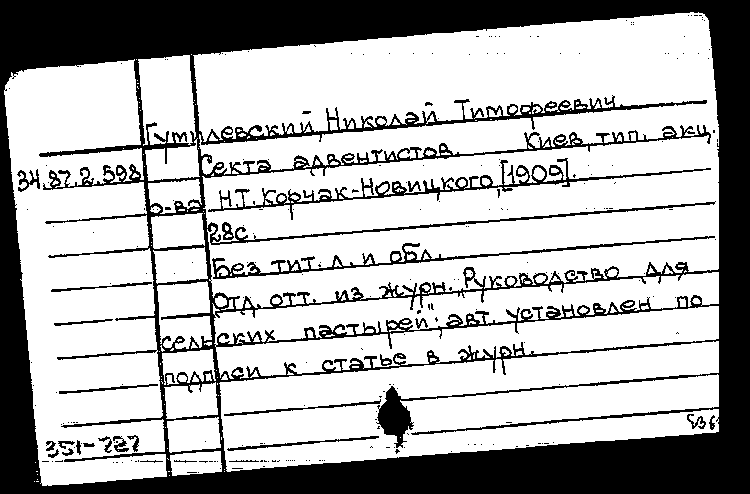 Гутилевский, Николай Тимофеевич.
34.87.2.598 Секта адвентистов. Киев, тип. акц.
о-ва Н.Т. Корчак-Новицкого, [1909].
28с.
Без тит. л. и обл.
Отд. отт. из журн. „Руководство для
сельских пастырей"; авт. установлен по
подписи к статье в журн.
351-787